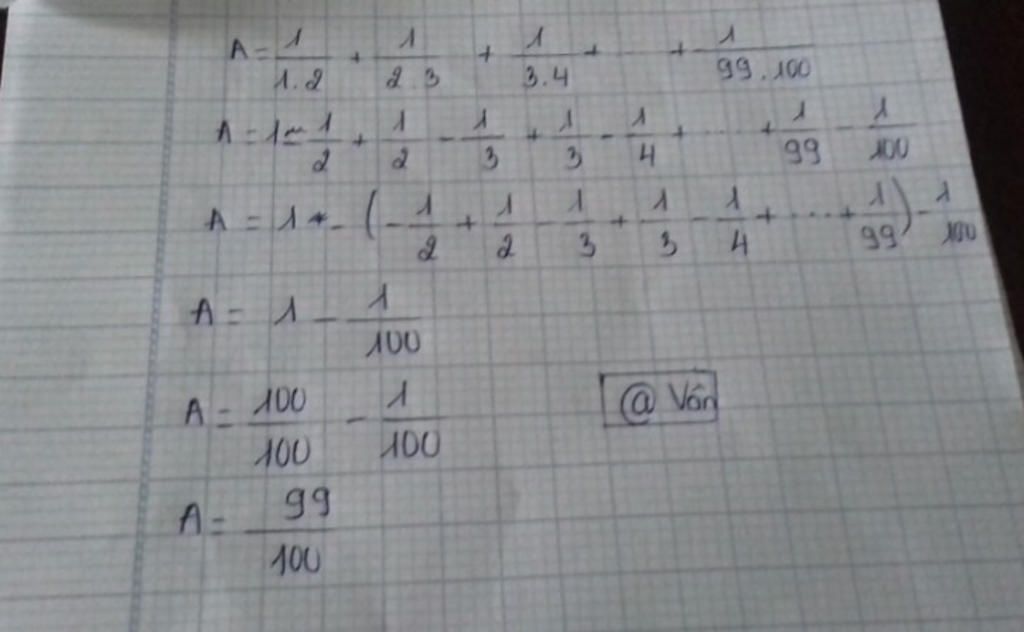 A = 1/1.2 + 1/2.3 + 1/3.4 + ... + 1/99.100
A = 1 - 1/2 + 1/2 - 1/3 + 1/3 - 1/4 + ... + 1/99 - 1/100
A = 1 - (- 1/2 + 1/2 - 1/3 + 1/3 - 1/4 + ... + 1/99) - 1/100
A = 1 - 1/100
A = 100/100 - 1/100
@ Vân
A = 99/100